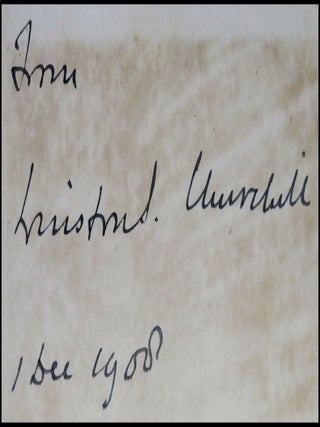 from
Winston S. Churchill
1 Dec 1908